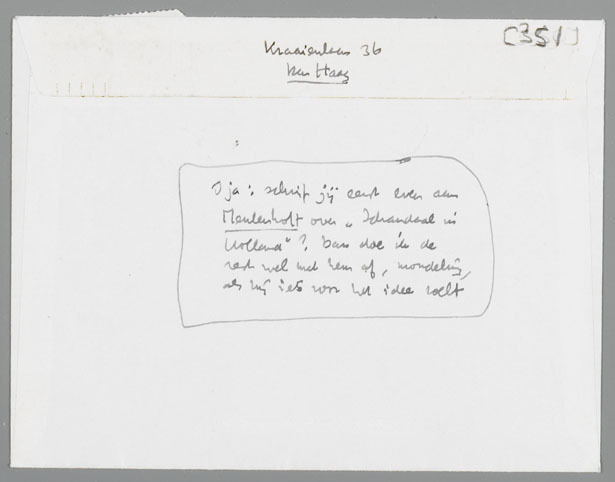 Kraaienlaan 36
Den Haag
[351]
O ja: schrijf jij eerst even aan
Meulenhoff over „Schandaal in
Holland"? Dan doe ik de
rest wel met hem af, mondeling,
als hij iets voor het idee voelt